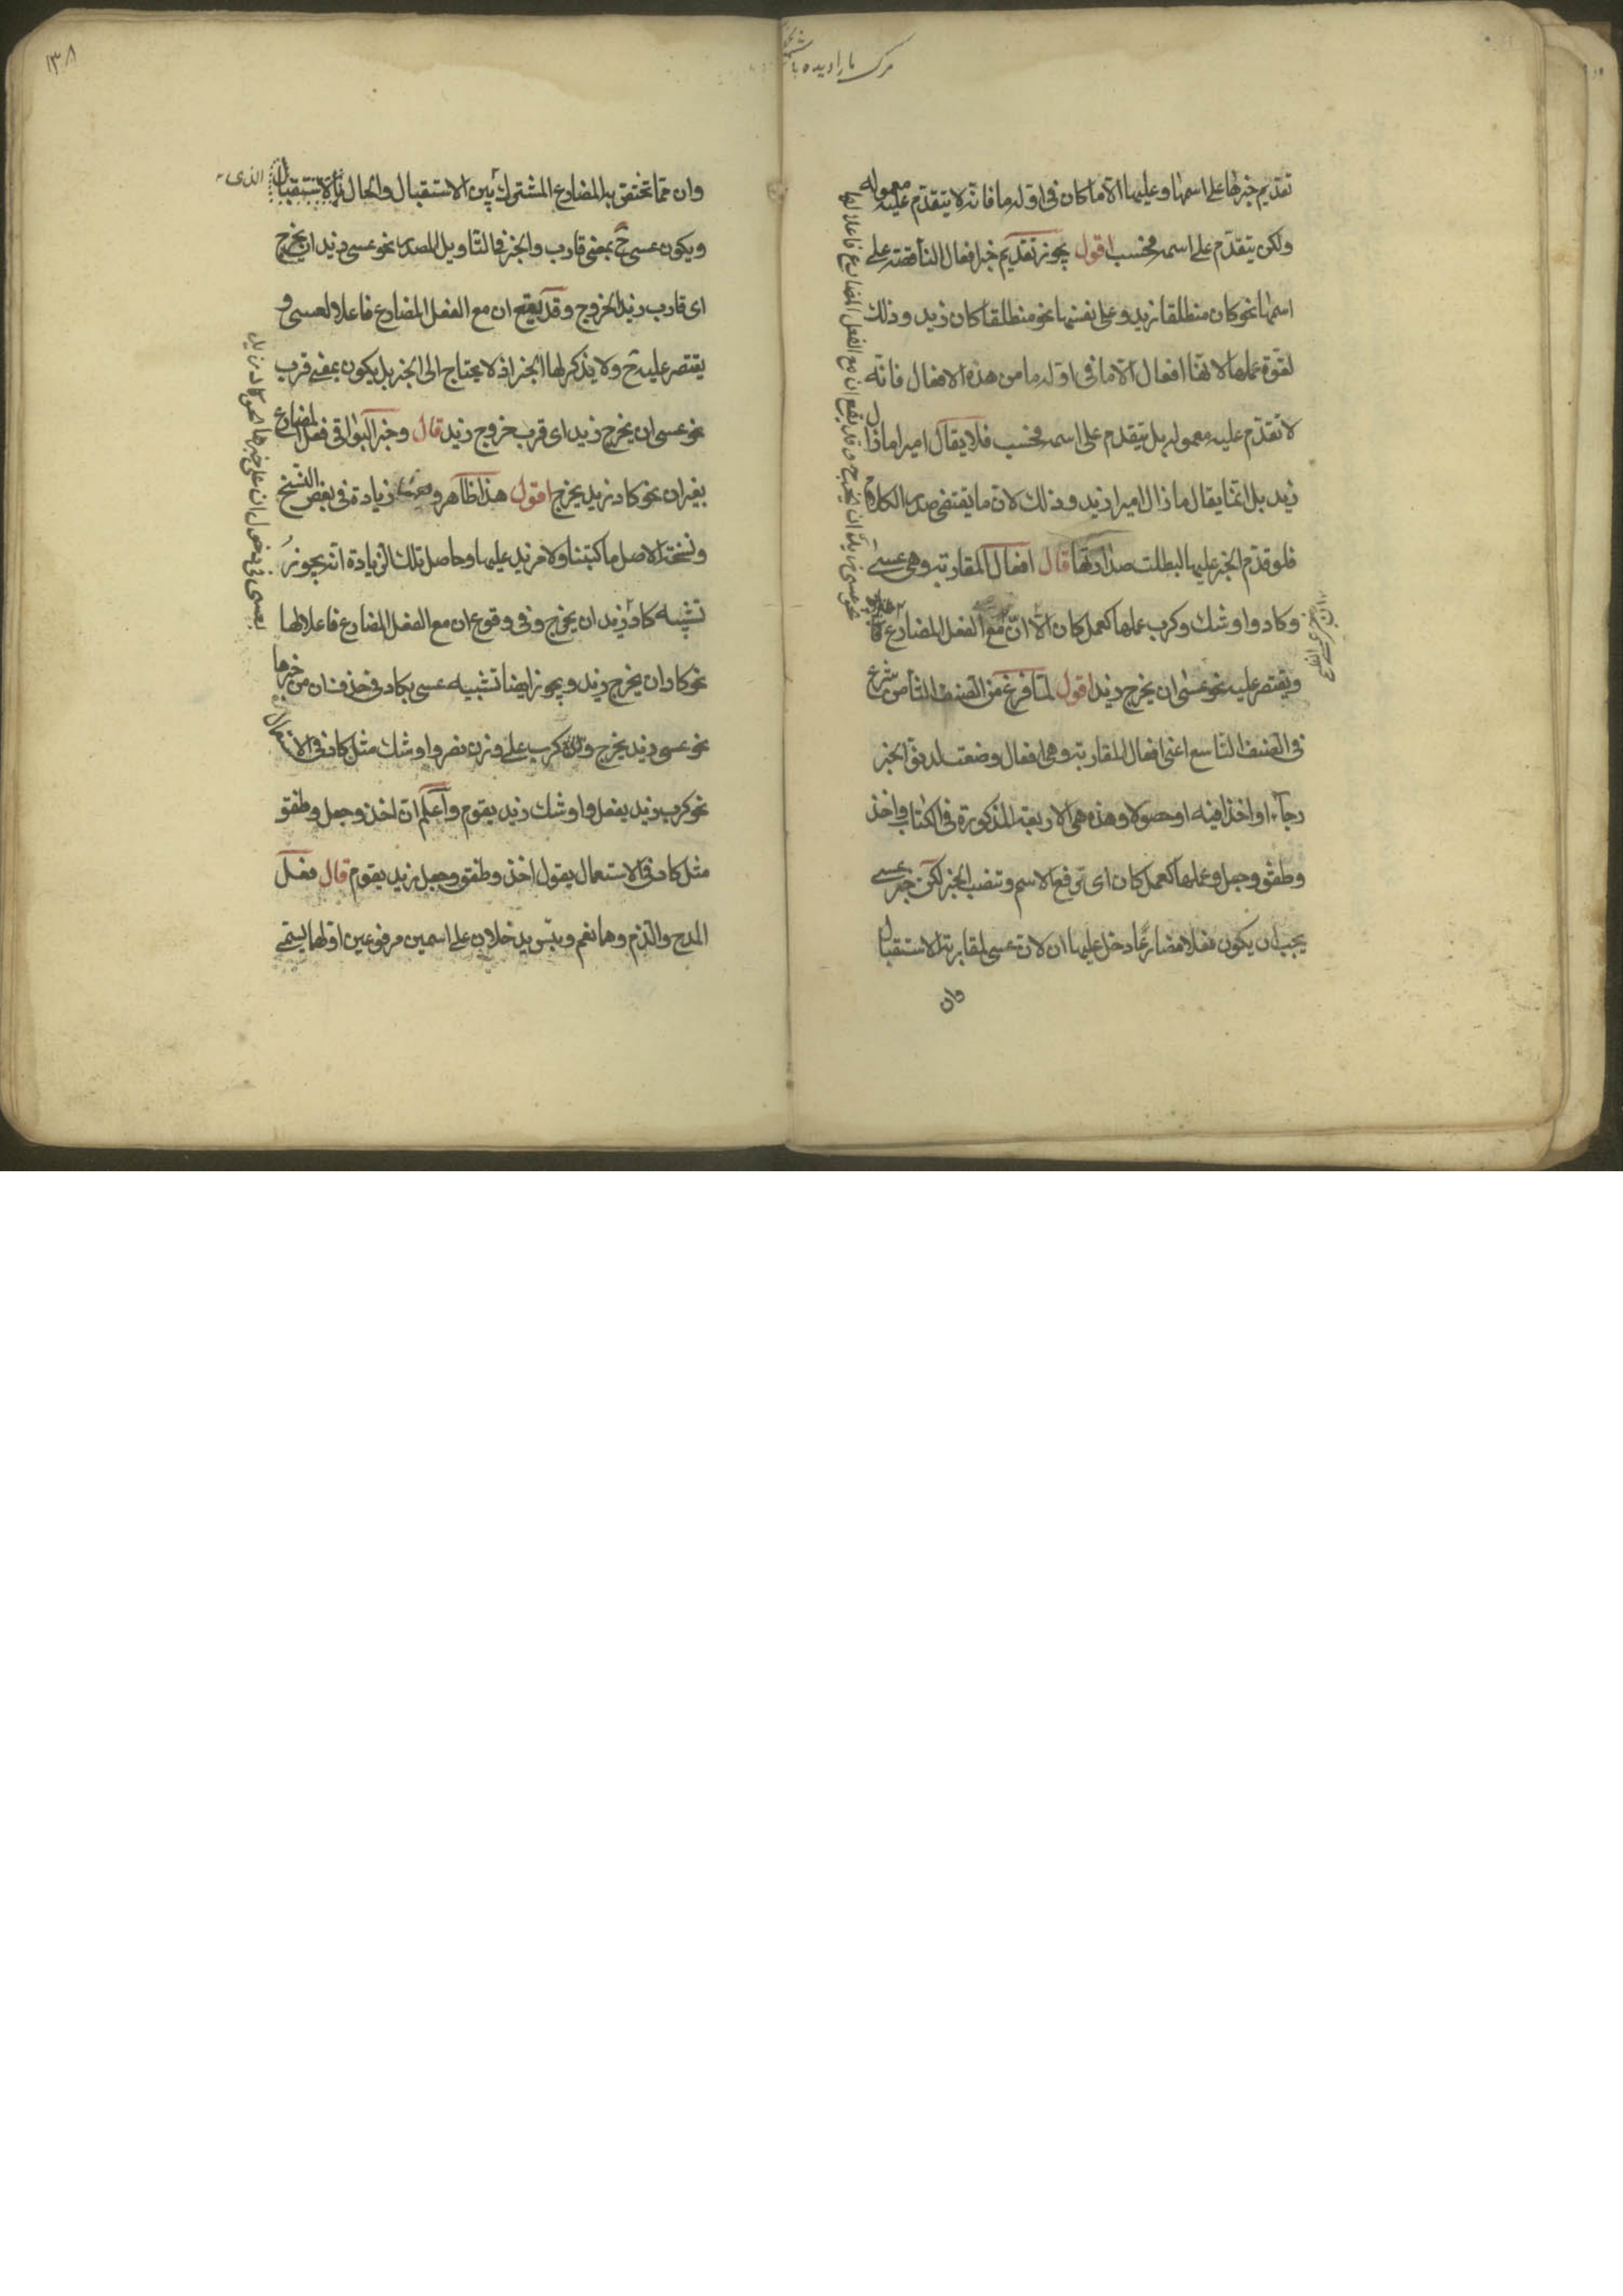 تقديم خبرها على اسمها وعليها الا ما كان فى اوله ما فانه لا يتقدم عليه معموله
ولكن يتقدم على اسمه فحسب اقول يجوز تقديم خبر افعال الناقصة على
اسمها نحو كان منطلقا زيد وعلى نفسها نحو منطلقا كان زيد وذلك
لقوة عملها لانها افعال الا ما فى اوله ما من هذه الافعال فانه
لا تقدم عليه معموله بل يتقدم على اسمه فحسب فلا يقال اميرا ما زال
زيد بل انما يقال ما زال اميرا زيد وذلك لان ما يقتضى صدر الكلام
فلو قدم الخبر عليها لبطلت صدارتها قال افعال المقاربة وهى عسى
وكاد واوشك وكرب عملها كعمل كان الا ان مع الفعل المضارع
ويقتصر عليه نحو عسى ان يخرج زيد اقول لما فرغ من الصنف الثامن شرع
فى الصنف التاسع اعنى افعال المقاربة وهى افعال وضعت لدنو الخبر
رجاء او اخذا فيه او حصولا وهذه هى الاربعة المذكورة فى الكتاب واخذ
وطفق وجعل وعملها كعمل كان اى ترفع الاسم وتنصب الخبر لكن خبر عسى
يجب ان يكون فعلا مضارعا دخل عليها ان لان عسى لمقاربة الاستقبال
وان
١٣٨
وان مما تختص به المضارع المشترك بين الاستقبال والحال بالاستقبال الذى
ويكون عسى ح بمعنى قارب والخبر فى التأويل المصدر نحو عسى زيد ان يخرج
اى قارب زيد الخروج وقد يقع ان مع الفعل المضارع فاعلا لعسى و
يقتصر عليه ح ولا يذكر لها الخبر اذ لا يحتاج الى الخبر بل يكون بمعنى قرب
نحو عسى ان يخرج زيد اى قرب خروج زيد قال وخبر البواقى فعل المضارع
بغير ان نحو كاد زيد يخرج اقول هذا ظاهر و زيادة فى بعض النسخ
ونسخة الاصل ما كتبنا ولا مزيد عليها وحاصل تلك الزيادة انه يجوز
تشبيه كاد زيد ان يخرج وفى وقوع ان مع الفعل المضارع فاعلا لها
نحو كاد ان يخرج زيد ويجوز ايضا تشبيه عسى بكاد فى حذف ان من خبرها
نحو عسى زيد يخرج وان كرب على وزن نصر واوشك مثل كاد فى الاستعمال
نحو كرب زيد يفعل واوشك زيد يقوم واعلم ان اخذ وجعل وطفق
مثل كاد فى الاستعمال يقول اخذ وطفق وجعل زيد يقوم قال فعل
المدح والذم وهما نعم وبئس يدخلان على اسمين مرفوعين اولهما يسمى